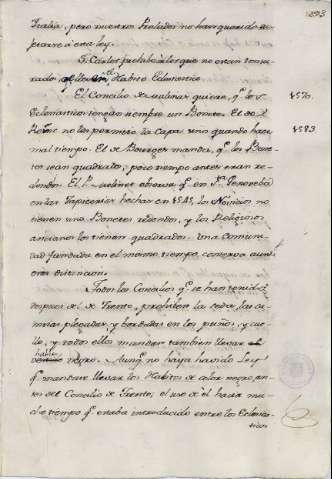 Italia, pero nuestros Prelados no han querido su-
jetarse á esta Ley.
S. Carlos prohibe á los que no estan tonsu-
rados q.e lleven el Habito Eclesiastico.
El Concilio de Malinas quiere, q.e los
Eclesiasticos tengan siempre un Bonete. El de
Reims no les permite la Capa sino quando hace
mal tiempo. El de Bourges manda, q.e los Bone-
tes sean quadrados, poco tiempo antes eran re-
dondos. El P. Moliner observa q.e en S.ta Genoveba
en las Tapicerias hechas en 1525, los Novicios no
tienen sino Bonetes redondos, y los Religiosos
ancianos los tienen quadrados. Una Comuni-
dad fundada en el mismo tiempo, conserva aun
esta distincion.
Todos los Concilios q.e se han tenido
despues del de Trento, prohiben la seda, las ca-
misas plegadas y bordadas en los puños, y cue-
llo, y todos ellos mandan tambien llevar el
habito negro. Aunq.e no haya havido Ley
q.e mandase llevar los Habitos de color negro, an-
tes del Concilio de Trento; el uso de él hacia mu-
cho tiempo q.e estaba introducido entre los Eclesias-
ticos
1570.
1583.